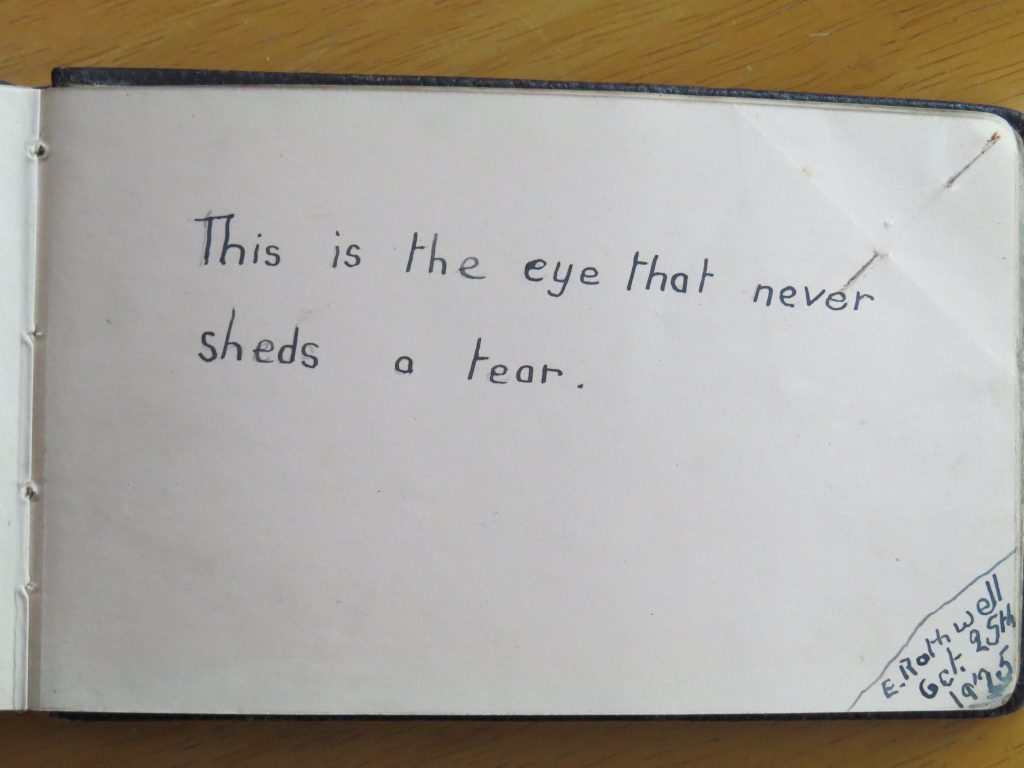 This is the eye that never
sheds a tear.
E. Rothwell
Oct. 25th